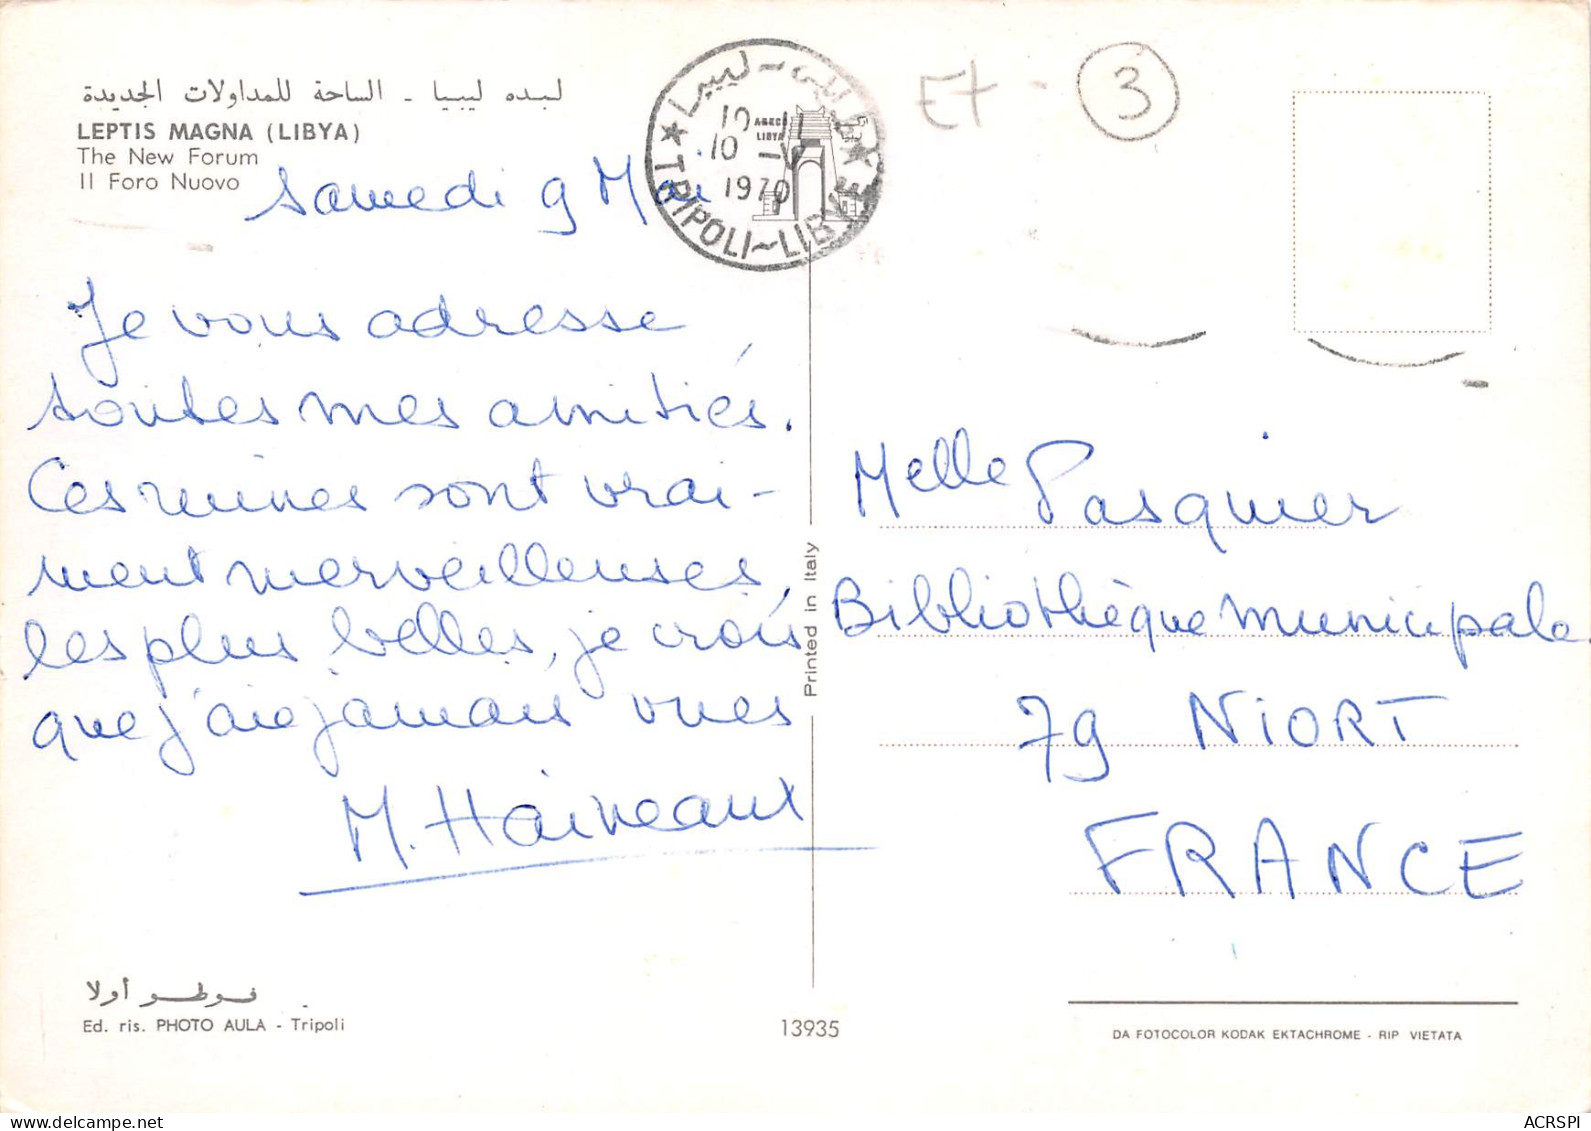 لبده ليبيا - الساحة للمداولات الجديدة
LEPTIS MAGNA (LIBYA)
The New Forum
Il Foro Nuovo
Samedi 9 Mai
Je vous adresse
toutes mes amitiés.
Ces ruines sont vrai-
ment merveilleuses,
les plus belles, je crois
que j'aie jamais vues
M. Haineaux
فوطو أولا
Ed. ris. PHOTO AULA - Tripoli
13935
Printed in Italy
طرابلس ~ ليبيا
10
10
1970
LIBYA
TRIPOLI ~ LIBYE
Et - 3
Melle Pasquier
Bibliothèque municipale
79 NIORT
FRANCE
DA FOTOCOLOR KODAK EKTACHROME - RIP VIETATA
ACRSPI